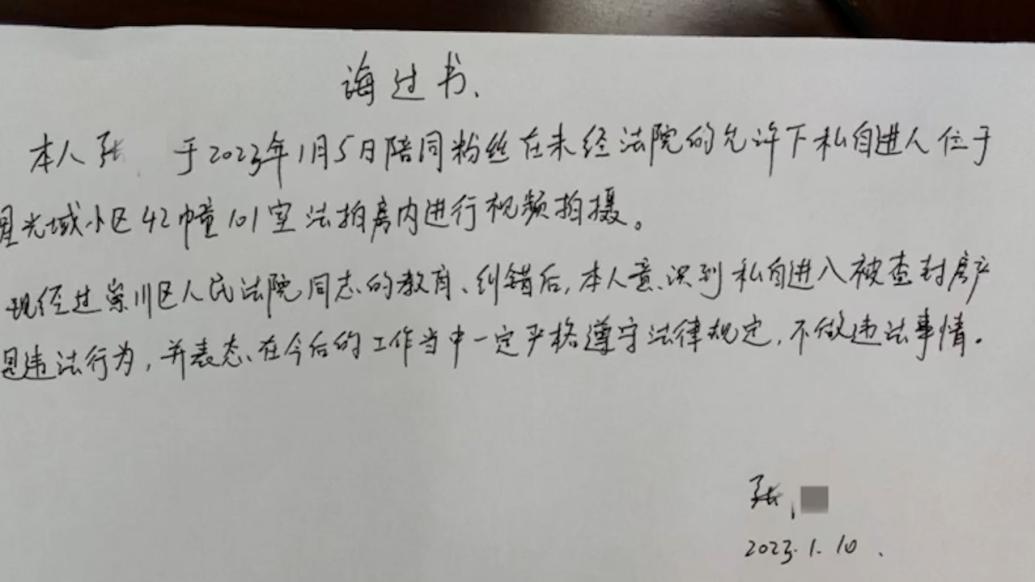 悔过书、
本人张 于2023年1月5日陪同粉丝在未经法院的允许下私自进入位于
星光域小区42幢101室法拍房内进行视频拍摄。
现经过崇川区人民法院同志的教育、纠错后,本人意识到私自进入被查封房产
是违法行为,并表态、在今后的工作当中一定严格遵守法律规定,不做违法事情。
张
2023.1.10.